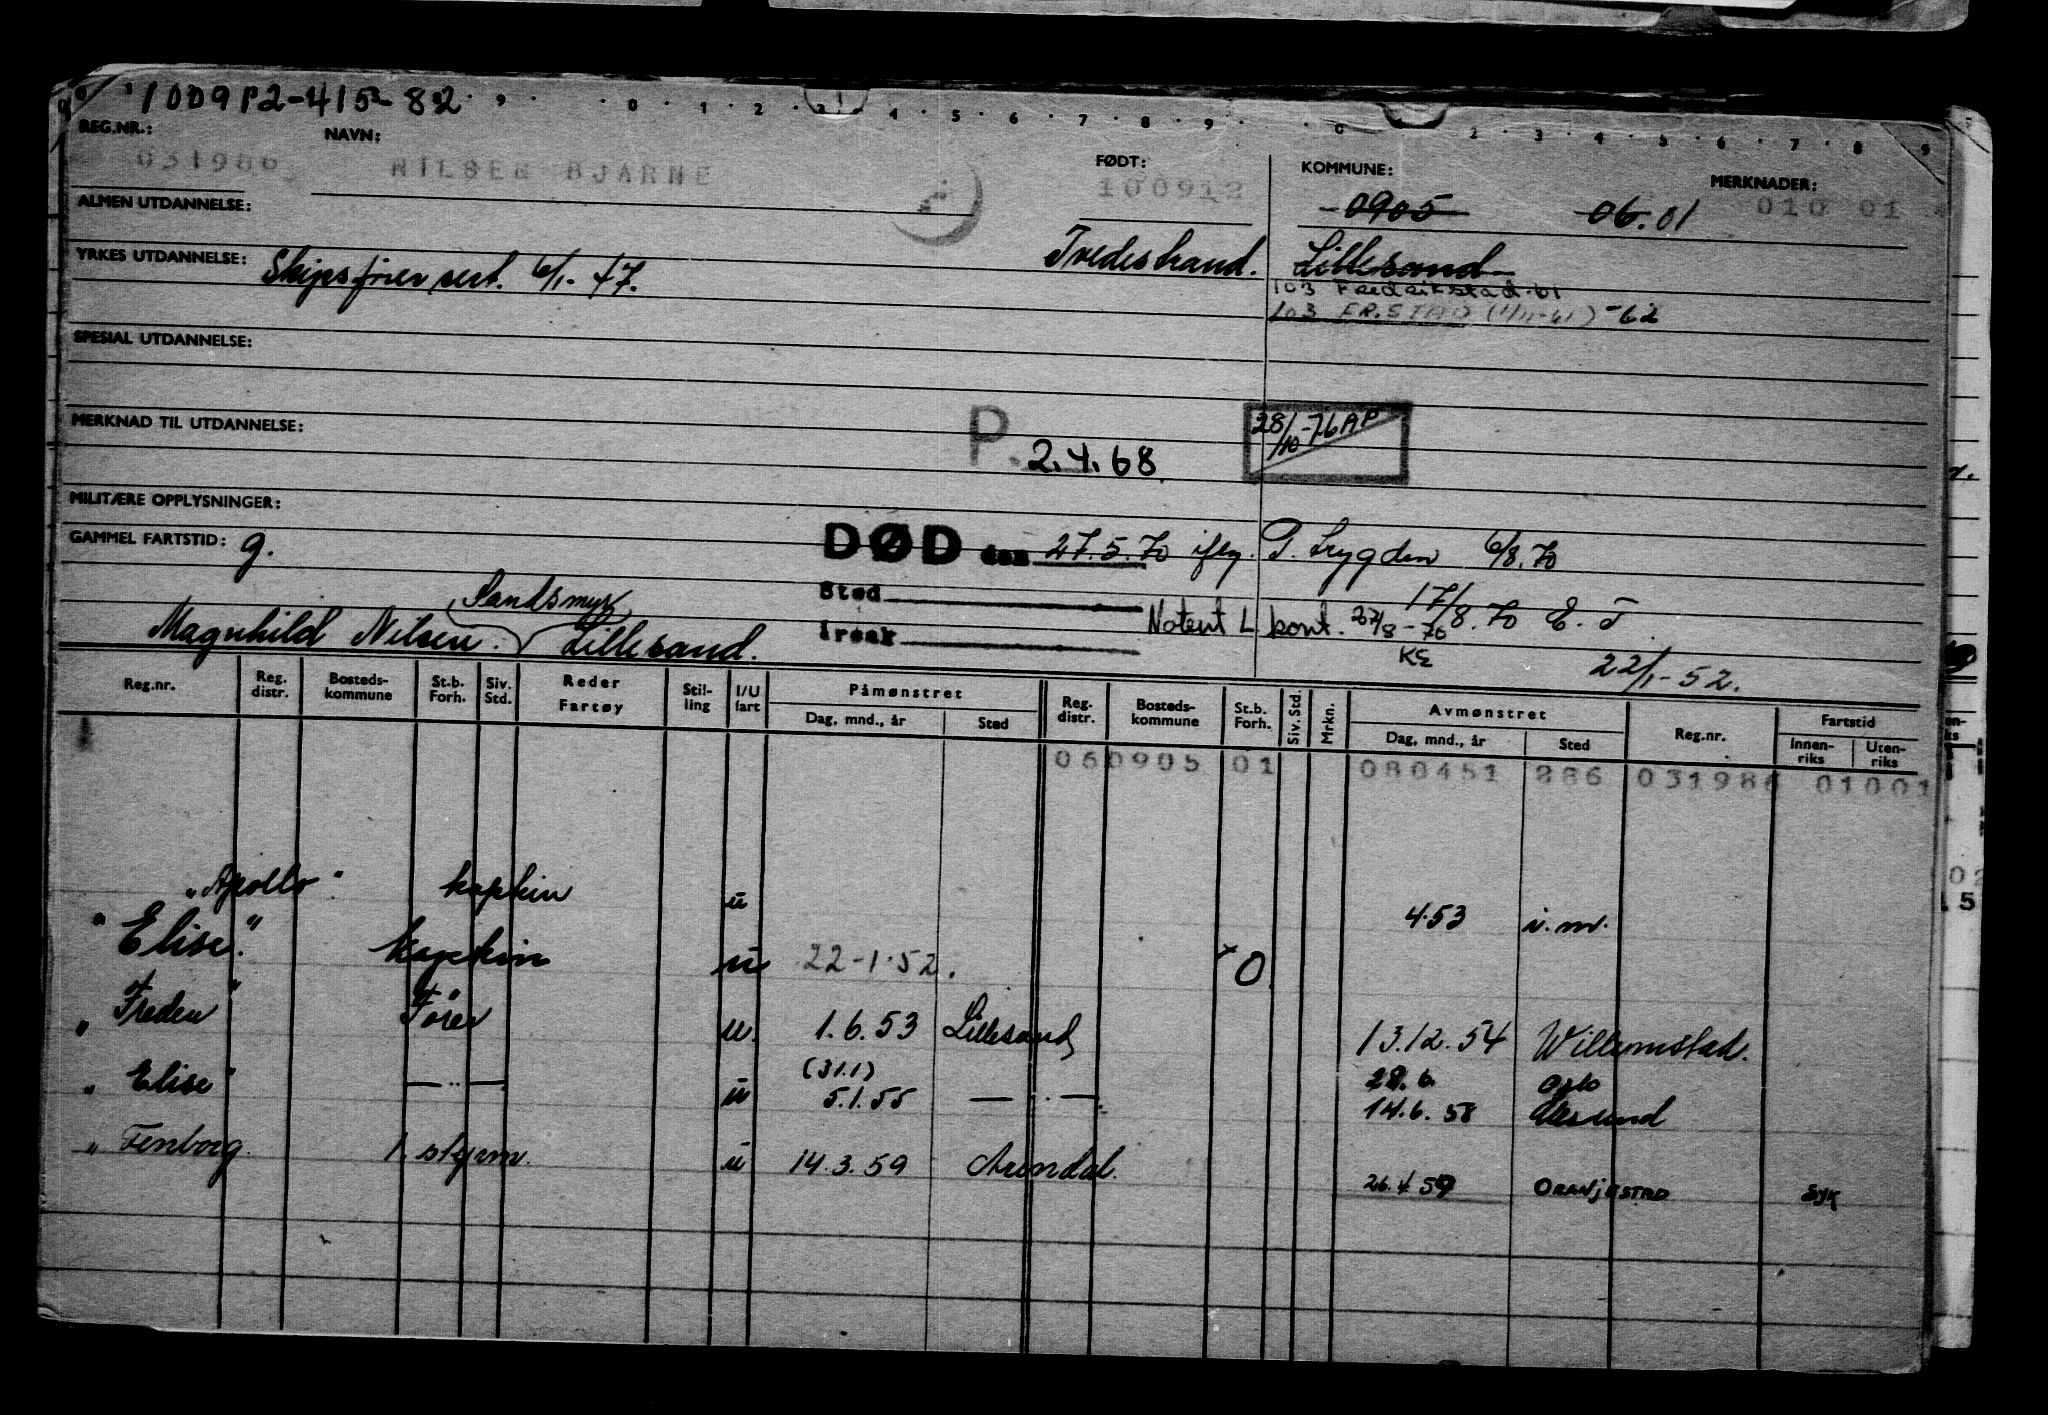 100912-415-82
REG.NR.: NAVN: FØDT: KOMMUNE: MERKNADER:
031986 NILSEN BJARNE 100912 0905 06.01 010 01
ALMEN UTDANNELSE:
YRKES UTDANNELSE: Skipsfører sert. 6/1-47. Tvedestrand. Lillesand
103 Fredrikstad-61
103 FR.STAD (1/11-61)-62
SPESIAL UTDANNELSE:
MERKNAD TIL UTDANNELSE: P. 2.4.68. 28/10-76 AP
MILITÆRE OPPLYSNINGER:
GAMMEL FARTSTID: g. DØD den 27.5.70 iflg. P. Trygden 6/8.70
Sted 17/8.70 E.T.
Årsak Notert L. kont. 27/8-70
KE
Sandsmyr
Magnhild Nilsen. Lillesand. 22/1-52.
Reg.nr. Reg. distr. Bosteds-kommune St.b. Forh. Siv. Std. Reder Fartøy Stil-ling I/U fart Påmønstret Dag, mnd., år Sted Reg. distr. Bosteds-kommune St.b. Forh. Siv. Std. Mrkn. Avmønstret Dag, mnd., år Sted Reg.nr. Fartstid Innen-riks Uten-riks
060905 01 080451 886 031986 01001
"Apollo" kaptein u 4.53 i.m.
"Elise" kaptein u 22-1-52. 0
"Freden" Fører u. 1.6.53 Lillesand 13.12.54 Willemstad.
(31.1) 28.6. Oslo
"Elise" —"— u 5.1.55 —"— 14.6.58 Ålesund
"Fenborg 1. styrm. u 14.3.59 Arendal. 26.4.59 ORANJESTAD SYK